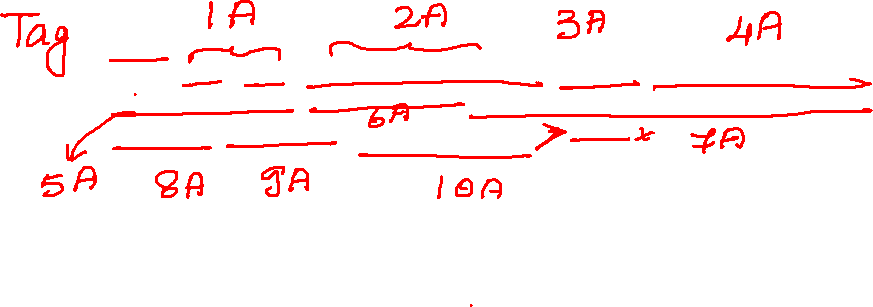 Tag 1A 2A 3A 4A
6A
x 7A
5A 8A 9A 10A